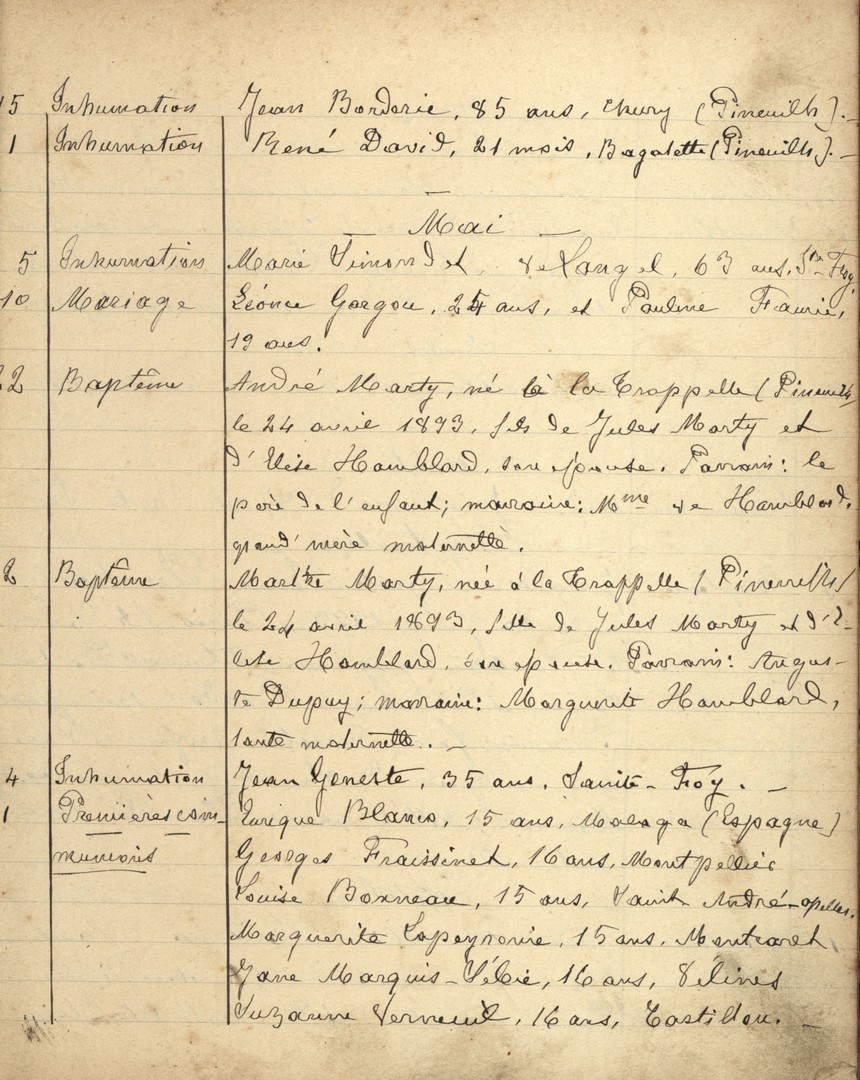 15 Inhumation Jean Borderie, 85 ans, (Pineuilh). -
1 Inhumation René David, 21 mois, Bagatette (Pineuilh). -
- Mai -
5 Inhumation Marie Simondet de Langel, 63 ans, Ste Foy
10 Mariage Léonce Gorgou, 25 ans, et Pauline Faurie,
19 ans.
22 Baptême André Marty, né à la Trappelle (Pineuilh)
le 24 avril 1893, fils de Jules Marty et
d'Elise Hamblard, son épouse. Parrain: le
père de l'enfant; marraine: Mme de Hamblard,
grand' mère maternelle.
2 Baptême Marthe Marty, née à la Trappelle (Pineuilh)
le 24 avril 1893, fille de Jules Marty et d'E-
lise Hamblard, son épouse. Parrain: Augus-
te Dupuy; marraine: Marguerite Hamblard,
tante maternelle. -
4 Inhumation Jean Geneste, 35 ans, Sainte-Foy. -
1 Premières com- Enrique Blanco, 15 ans, Malaga (Espagne)
munions Georges Fraissinet, 16 ans, Montpellier
Louise Bonneau, 15 ans, Saint André-apelles.
Marguerite Lapeyronie, 15 ans, Montcaret
Jane Marquis-Sébie, 16 ans, Vélines
Suzanne Verneuil, 16 ans, Castillon. -